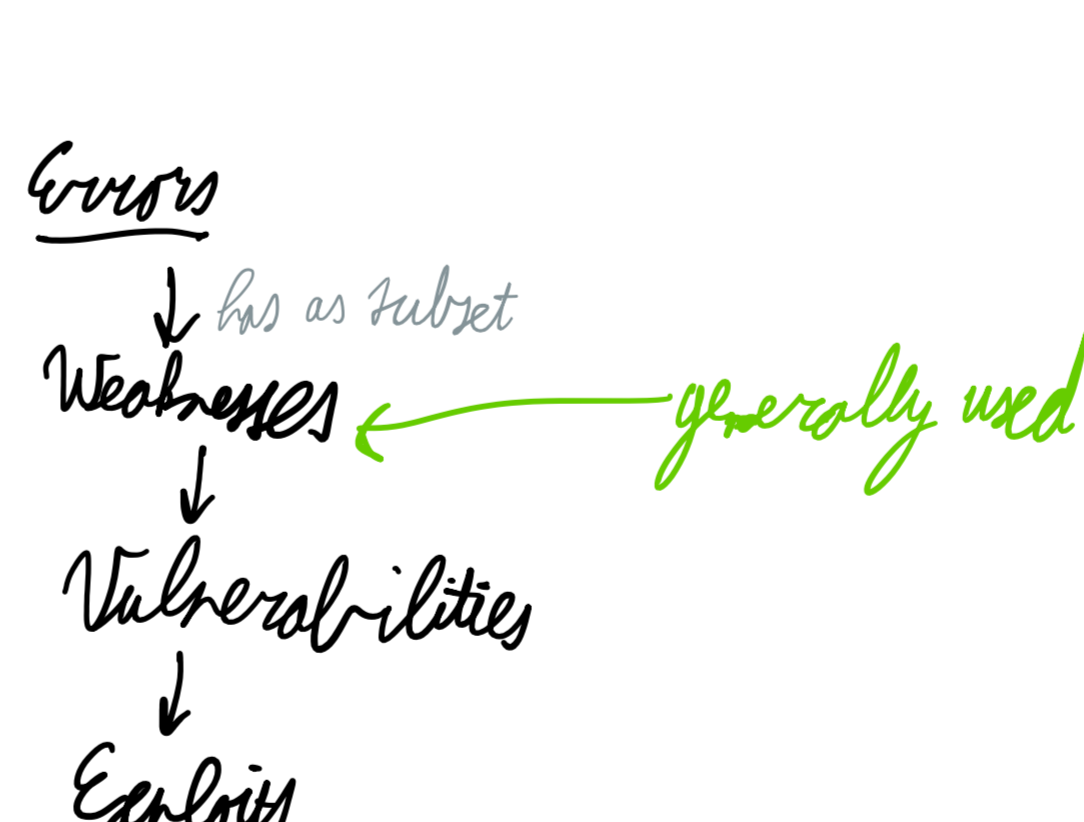 Errors
has as subset
Weaknesses
generally used
Vulnerabilities
Exploits